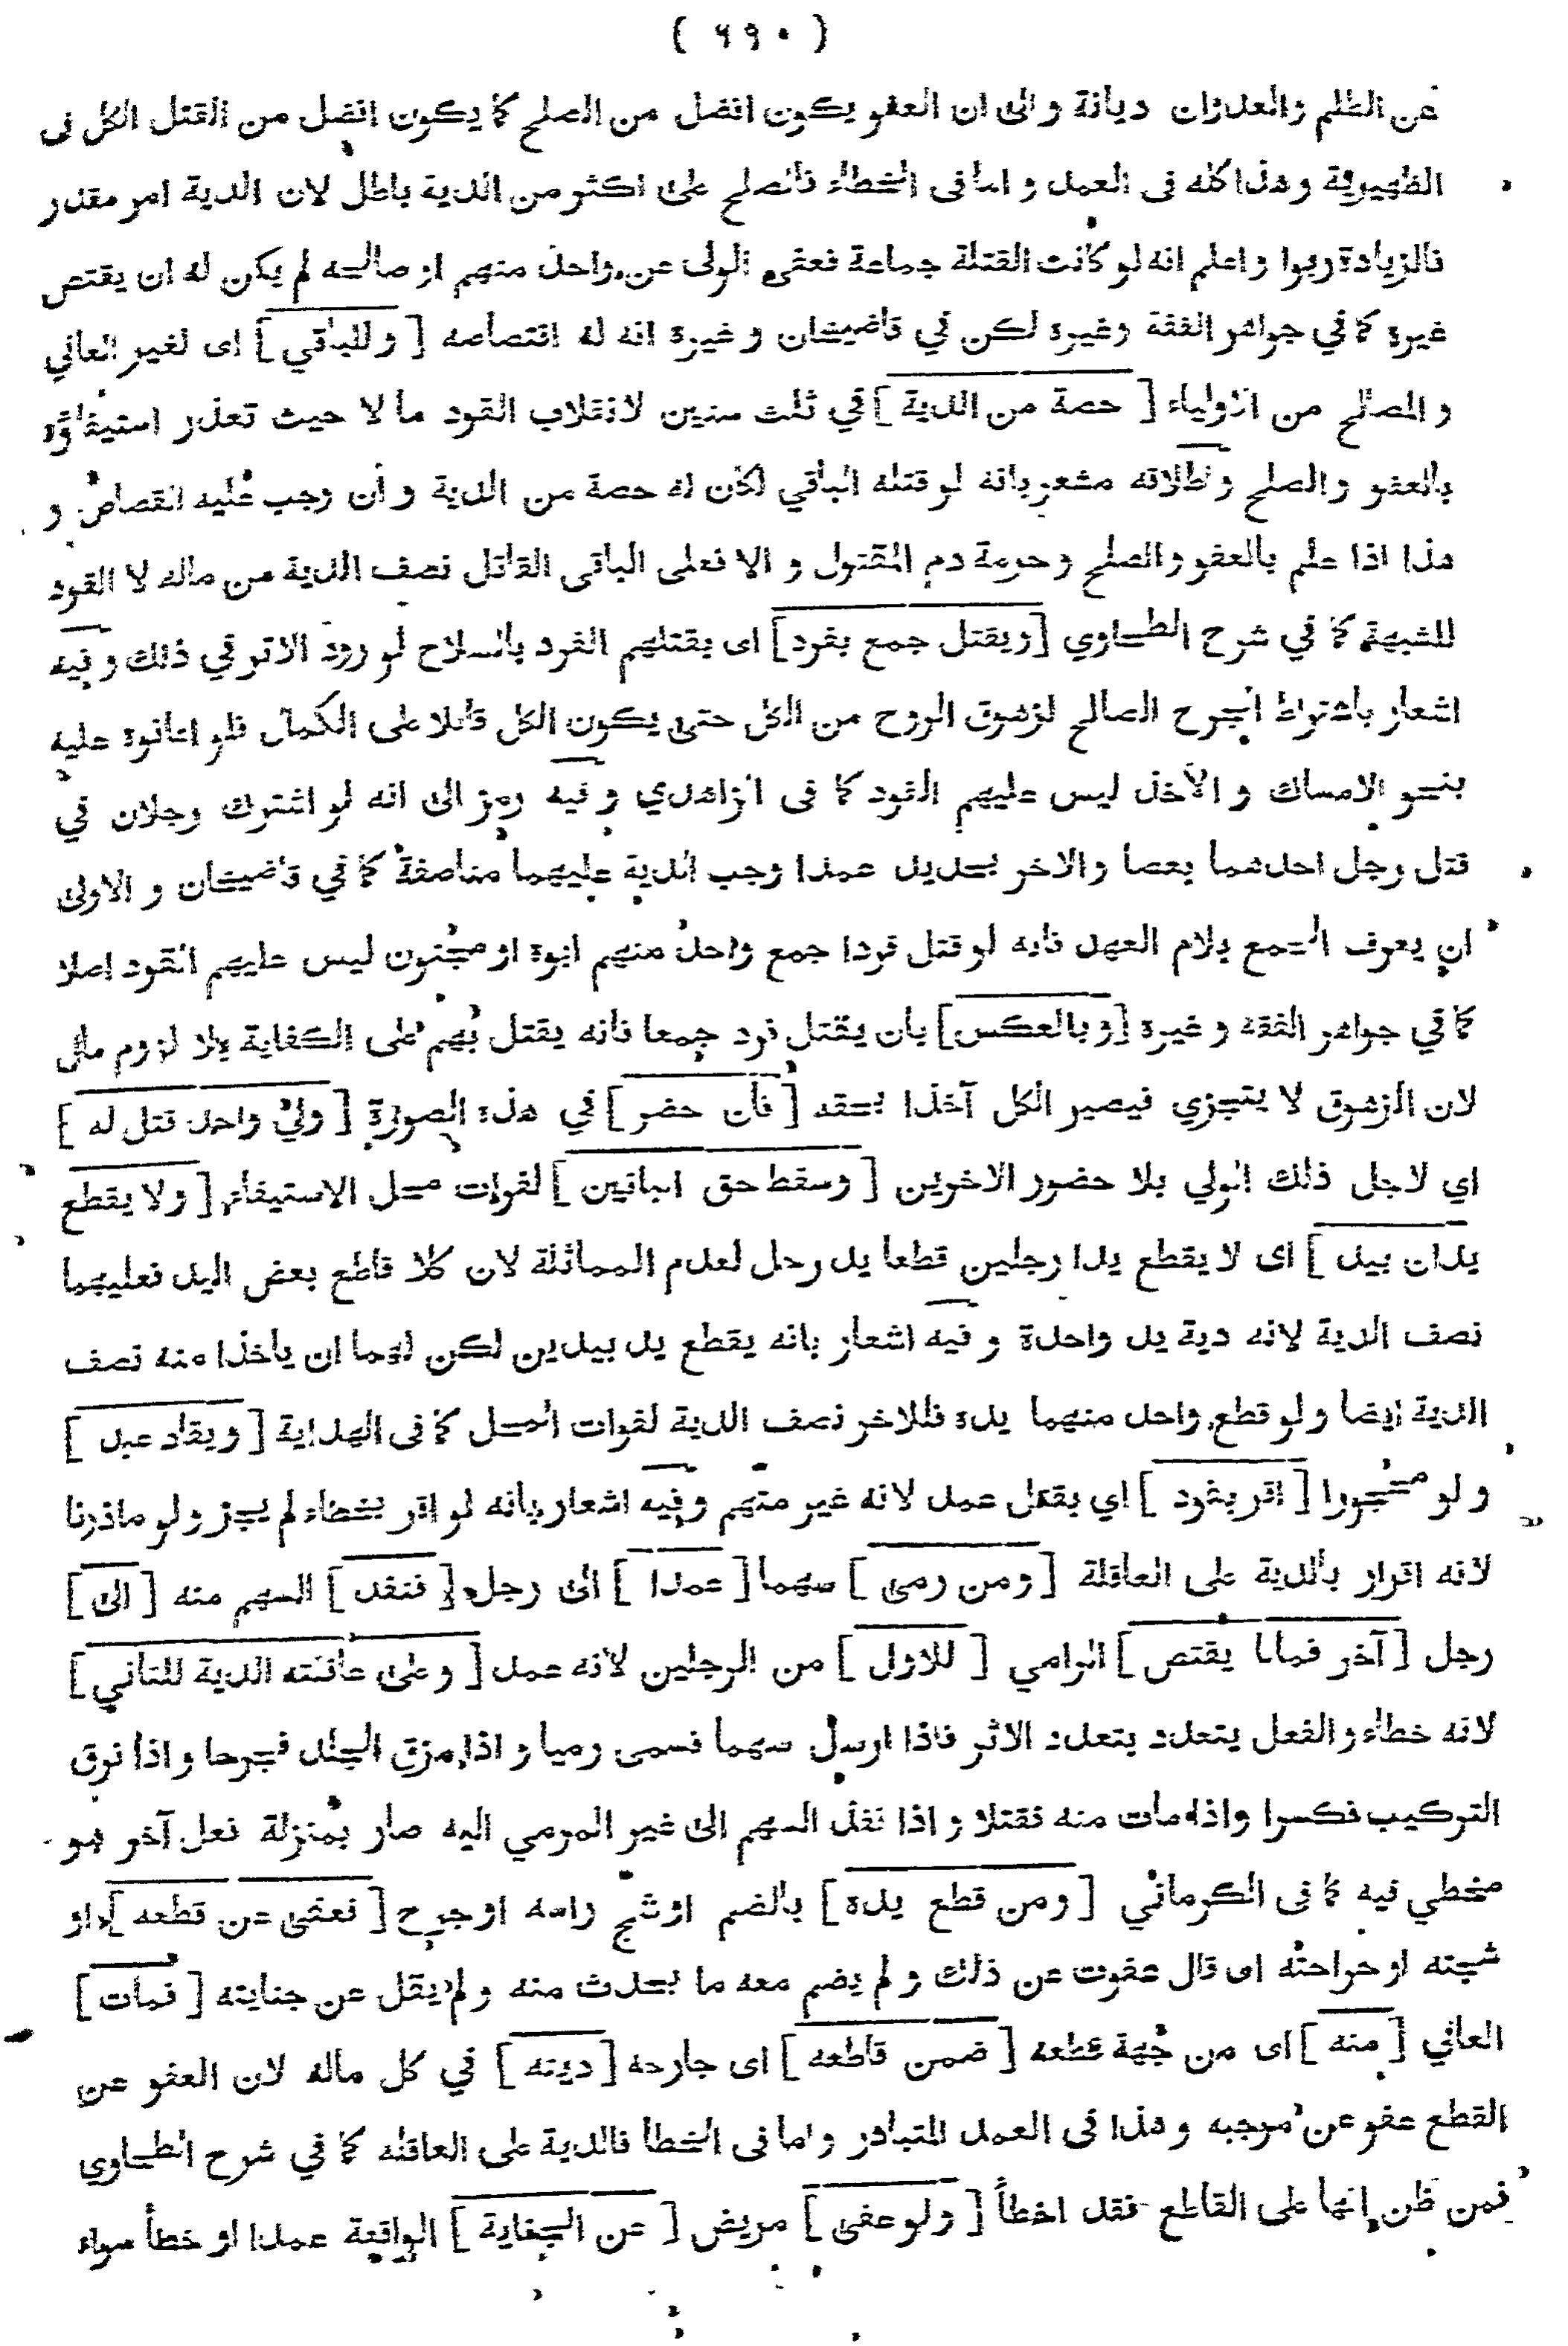 ( ٦٩٠ )
عن الظلم والعدوان ديانة والى ان العفو يكون افضل من الصلح كما يكون افضل من القتل الكل فى
الظهيرية وهذا كله فى العمد و اما فى الخطاء فالصلح على اكثر من الدية باطل لان الدية امر مقدر
فالزيادة ربوا واعلم انه لو كانت القتلة جماعة فعفى الولى عن واحد منهم او صالحه لم يكن له ان يقتص
غيرة كما في جواهر الفقه وغيرة لكن في قاضيخان وغيرة انه له اقتصاصه [ وللباقي ] اى لغير العافي
و المصالح من الاولياء [ حصة من الدية ] في ثلث سنين لانقلاب القود مالا حيث تعذر استيفاؤه
بالعفو و الصلح و اطلاقه مشعر بانه لو قتله الباقي لكان له حصة من الدية و ان وجب عليه القصاص و
هذا اذا علم بالعفو والصلح وحرمة دم المقتول و الا فعلى الباقى القاتل نصف الدية من ماله لا القود
للشبهة كما في شرح الطحاوي [ ويقتل جمع بفرد ] اى بقتلهم الفرد بالسلاح لورود الاثر في ذلك وفيه
اشعار باشتراط الجرح الصالح لزهوق الروح من الكل حتى يكون الكل قاتلا على الكمال فلو اعانوة عليه
بنحو الامساك و الاخذ ليس عليهم القود كما فى الزاهدي و فيه رمز الى انه لو اشترك رجلان في
قتل رجل احدهما بعصا والاخر بحديد عمدا وجب الدية عليهما مناصفة كما في قاضيخان و الاولى
ان يعرف الجمع بلام العهد فانه لو قتل فردا جمع واحد منهم ابوة او مجنون ليس عليهم القود اصلا
كما في جواهر الفقه وغيرة [ وبالعكس ] بان يقتل فرد جمعا فانه يقتل بهم على الكفاية بلا لزوم مال
لان الزهوق لا يتجزي فيصير الكل آخذا بحقه [ فان حضر ] في هذه الصورة [ ولي واحد قتل له ]
اي لاجل ذلك الولي بلا حضور الاخرين [ وسقط حق الباقين ] لفوات محل الاستيفاء [ ولا يقطع
يدان بيد ] اى لا يقطع يدا رجلين قطعا يد رجل لعدم المماثلة لان كلا قاطع بعض اليد فعليهما
نصف الدية لانه دية يد واحدة و فيه اشعار بانه يقطع يد بيدين لكن لهما ان ياخذا منه نصف
الدية ايضا و لو قطع واحد منهما يده فللاخر نصف الدية لفوات المحل كما فى الهداية [ ويقاد عبد ]
و لو محجورا [ اقر بقود ] اي بقتل عمد لانه غير متهم وفيه اشعار بانه لو اقر بخطاء لم يجز ولو ماذونا
لانه اقرار بالدية على العاقلة [ ومن رمى ] سهما [ عمدا ] الى رجل [ فنفذ ] السهم منه [ الى ]
رجل [ آخر فماتا يقتص ] الرامي [ للاول ] من الرجلين لانه عمد [ وعلى عاقلته الدية للثاني ]
لانه خطاء والفعل يتعدد بتعدد الاثر فاذا ارسل سهما فسمى رميا و اذا مزق الجلد فجرحا و اذا فرق
التركيب فكسرا واذا مات منه فقتلا و اذا نفذ السهم الى غير المرمي اليه صار بمنزلة فعل آخر هو
مخطي فيه كما فى الكرماني [ ومن قطع يده ] بالضم او شج راسه او جرح [ فعفى عن قطعه ] او
شجته او جراحته اى قال عفوت عن ذلك و لم يضم معه ما يحدث منه و لم يقل عن جنايته [ فمات ]
العافي [ منه ] اى من جهة قطعه [ ضمن قاطعه ] اى جارحه [ ديته ] في كل ماله لان العفو عن
القطع عفو عن موجبه و هذا فى العمد المتبادر و اما فى الخطا فالدية على العاقله كما في شرح الطحاوى
فمن ظن انها على القاطع فقد اخطأ [ ولو عفى ] مريض [ عن الجناية ] الواقعة عمدا او خطأ سواء